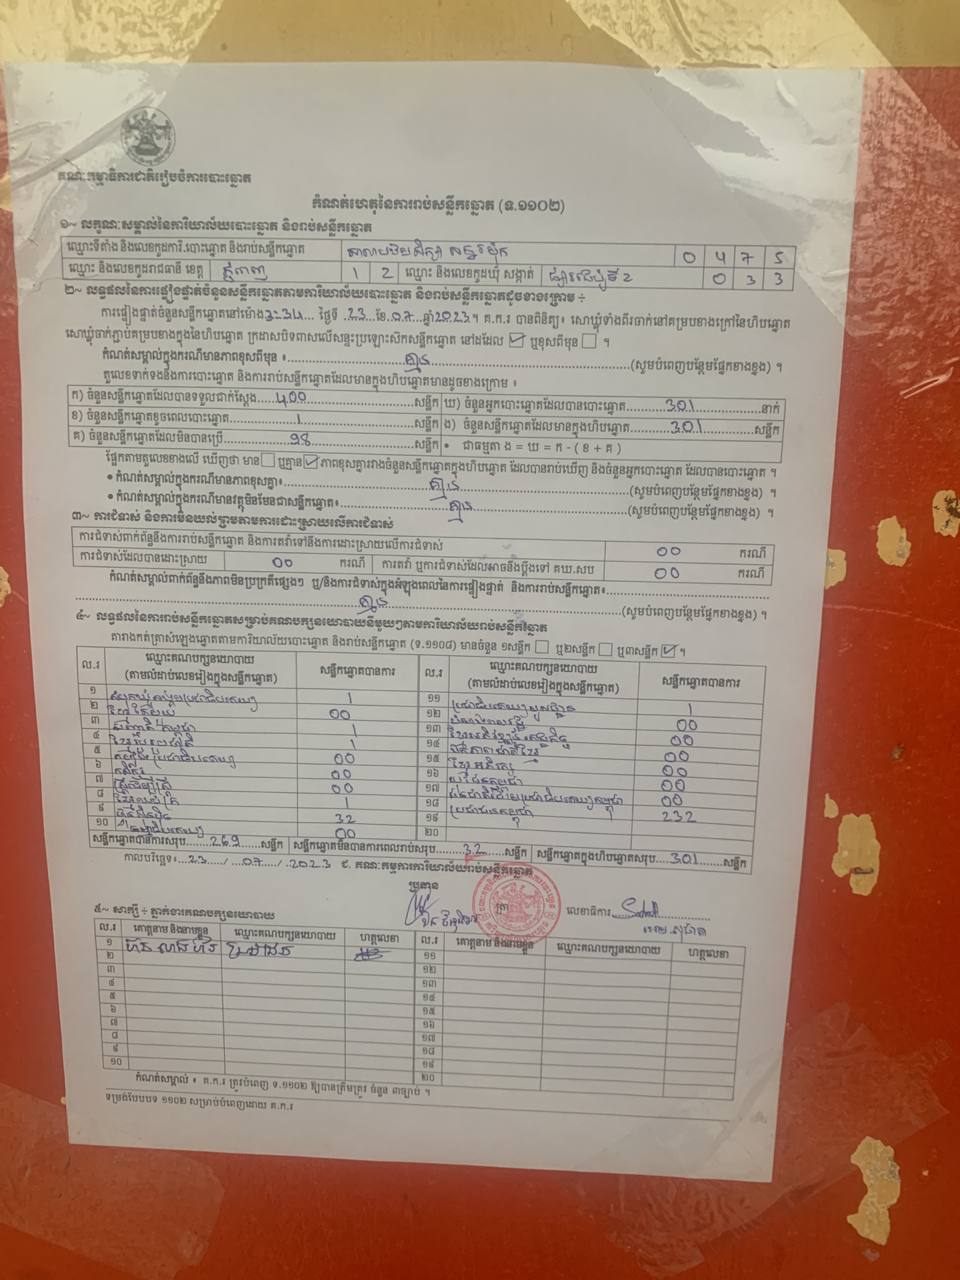 គណៈកម្មាធិការជាតិរៀបចំការបោះឆ្នោត
កំណត់ហេតុនៃការរាប់សន្លឹកឆ្នោត (ទ.១១០២)
១~ លក្ខណៈសម្គាល់នៃការិយាល័យបោះឆ្នោត និងរាប់សន្លឹកឆ្នោត
ឈ្មោះទីតាំង និងលេខកូដការិ.បោះឆ្នោត និងរាប់សន្លឹកឆ្នោត 0 4 7 5
ឈ្មោះ និងលេខកូដរាជធានី ខេត្ត ភ្នំពេញ 1 2 ឈ្មោះ និងលេខកូដឃុំ សង្កាត់ ផ្សារដេប៉ូទី 2 0 3 3
២~ លទ្ធផលនៃការផ្ទៀងផ្ទាត់ចំនួនសន្លឹកឆ្នោតតាមការិយាល័យបោះឆ្នោត និងរាប់សន្លឹកឆ្នោតដូចខាងក្រោម ÷
ការផ្ទៀងផ្ទាត់ចំនួនសន្លឹកឆ្នោតនៅម៉ោង 3:34 ថ្ងៃទី 23 ខែ 07 ឆ្នាំ 2023។ គ.ក.រ បានពិនិត្យ៖ សោឃ្លុំទាំងពីរចាក់នៅគម្របខាងក្រៅនៃហិបឆ្នោត
សោឃ្លុំចាក់ភ្ជាប់គម្របខាងក្នុងនៃហិបឆ្នោត ក្រដាសបិទពាសលើសន្ទះប្រឡោះស៊កសន្លឹកឆ្នោត នៅដដែល ☑ ឬខុសពីមុន ☐ ។
កំណត់សម្គាល់ក្នុងករណីមានភាពខុសពីមុន ៖ គ្មាន (សូមបំពេញបន្ថែមផ្នែកខាងខ្នង) ។
តួលេខទាក់ទងនឹងការបោះឆ្នោត និងការរាប់សន្លឹកឆ្នោតដែលមានក្នុងហិបឆ្នោតមានដូចខាងក្រោម ៖
ក) ចំនួនសន្លឹកឆ្នោតដែលបានទទួលជាក់ស្ដែង 400 សន្លឹក ឃ) ចំនួនអ្នកបោះឆ្នោតដែលបានបោះឆ្នោត 301 នាក់
ខ) ចំនួនសន្លឹកឆ្នោតខូចពេលបោះឆ្នោត 1 សន្លឹក ង) ចំនួនសន្លឹកឆ្នោតដែលមានក្នុងហិបឆ្នោត 301 សន្លឹក
គ) ចំនួនសន្លឹកឆ្នោតដែលមិនបានប្រើ 98 សន្លឹក • ជាធម្មតា ង = ឃ = ក - ( ខ + គ )
ផ្អែកតាមតួលេខខាងលើ ឃើញថា មាន ☐ ឬគ្មាន ☑ ភាពខុសគ្នារវាងចំនួនសន្លឹកឆ្នោតក្នុងហិបឆ្នោត ដែលបានរាប់ឃើញ និងចំនួនអ្នកបោះឆ្នោត ដែលបានបោះឆ្នោត ។
• កំណត់សម្គាល់ក្នុងករណីមានភាពខុសគ្នា៖ គ្មាន (សូមបំពេញបន្ថែមផ្នែកខាងខ្នង) ។
• កំណត់សម្គាល់ក្នុងករណីមានវត្ថុមិនមែនជាសន្លឹកឆ្នោត៖ គ្មាន (សូមបំពេញបន្ថែមផ្នែកខាងខ្នង) ។
៣~ ការជំទាស់ និងការមិនយល់ព្រមតាមការដោះស្រាយលើការជំទាស់
ការជំទាស់ពាក់ព័ន្ធនឹងការរាប់សន្លឹកឆ្នោត និងការតវ៉ាទៅនឹងការដោះស្រាយលើការជំទាស់ 00 ករណី
ការជំទាស់ដែលបានដោះស្រាយ 00 ករណី ការតវ៉ា ឬការជំទាស់ដែលអាចនឹងប្ដឹងទៅ គឃ.សប 00 ករណី
កំណត់សម្គាល់ពាក់ព័ន្ធនឹងភាពមិនប្រក្រតីផ្សេងៗ ឬ/និងការជំទាស់ក្នុងអំឡុងពេលនៃការផ្ទៀងផ្ទាត់ និងការរាប់សន្លឹកឆ្នោត៖
គ្មាន (សូមបំពេញបន្ថែមផ្នែកខាងខ្នង) ។
៤~ លទ្ធផលនៃការរាប់សន្លឹកឆ្នោតសម្រាប់គណបក្សនយោបាយនីមួយៗតាមការិយាល័យរាប់សន្លឹកឆ្នោត
តារាងកត់ត្រាសំឡេងឆ្នោតតាមការិយាល័យបោះឆ្នោត និងរាប់សន្លឹកឆ្នោត (ទ.១១០៨) មានចំនួន ១សន្លឹក ☐ ឬ២សន្លឹក ☐ ឬ៣សន្លឹក ☑ ។
ល.រ ឈ្មោះគណបក្សនយោបាយ (តាមលំដាប់លេខរៀងក្នុងសន្លឹកឆ្នោត) សន្លឹកឆ្នោតបានការ ល.រ ឈ្មោះគណបក្សនយោបាយ (តាមលំដាប់លេខរៀងក្នុងសន្លឹកឆ្នោត) សន្លឹកឆ្នោតបានការ
១ 1 ១១ 1
២ 00 ១២ 00
៣ 1 ១៣ 00
៤ ខ្មែររួបរួមជាតិ 1 ១៤ 00
៥ 00 ១៥ ខ្មែរអភិរក្ស 00
៦ កសិករ 00 ១៦ 00
៧ ស្ត្រីដើម្បីស្ត្រី 00 ១៧ 00
៨ 1 ១៨ ប្រជាជនកម្ពុជា 232
៩ ហ្វ៊ុនស៊ិនប៉ិច 32 ១៩
១០ 00 ២០
សន្លឹកឆ្នោតបានការសរុប 269 សន្លឹក សន្លឹកឆ្នោតមិនបានការពេលរាប់សរុប 32 សន្លឹក សន្លឹកឆ្នោតក្នុងហិបឆ្នោតសរុប 301 សន្លឹក
កាលបរិច្ឆេទ៖ 23 / 07 / 2023 ជ. គណៈកម្មការការិយាល័យរាប់សន្លឹកឆ្នោត
ប្រធាន
ត្រា លេខាធិការ
៥~ សាក្សី ÷ ភ្នាក់ងារគណបក្សនយោបាយ
ល.រ គោត្តនាម និងនាមខ្លួន ឈ្មោះគណបក្សនយោបាយ ហត្ថលេខា ល.រ គោត្តនាម និងនាមខ្លួន ឈ្មោះគណបក្សនយោបាយ ហត្ថលេខា
១ ១១
២ ១២
៣ ១៣
៤ ១៤
៥ ១៥
៦ ១៦
៧ ១៧
៨ ១៨
៩ ១៩
១០ ២០
កំណត់សម្គាល់ ៖ គ.ក.រ ត្រូវបំពេញ ទ.១១០២ ឱ្យបានត្រឹមត្រូវ ចំនួន ៣ច្បាប់ ។
ទម្រង់បែបបទ ១១០២ សម្រាប់បំពេញដោយ គ.ក.រ